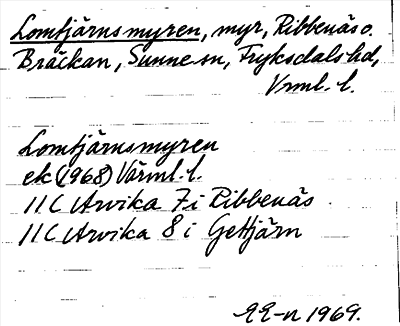 Lomtjärnsmyren, myr, Ribbenäs o.
Bräckan, Sunne sn, Fryksdals hd,
Vrml. l.
Lomtjärnsmyren
ek (1968) Värml. l.
11C Arvika 7i Ribbenäs
11C Arvika 8i Gettjärn
1969.